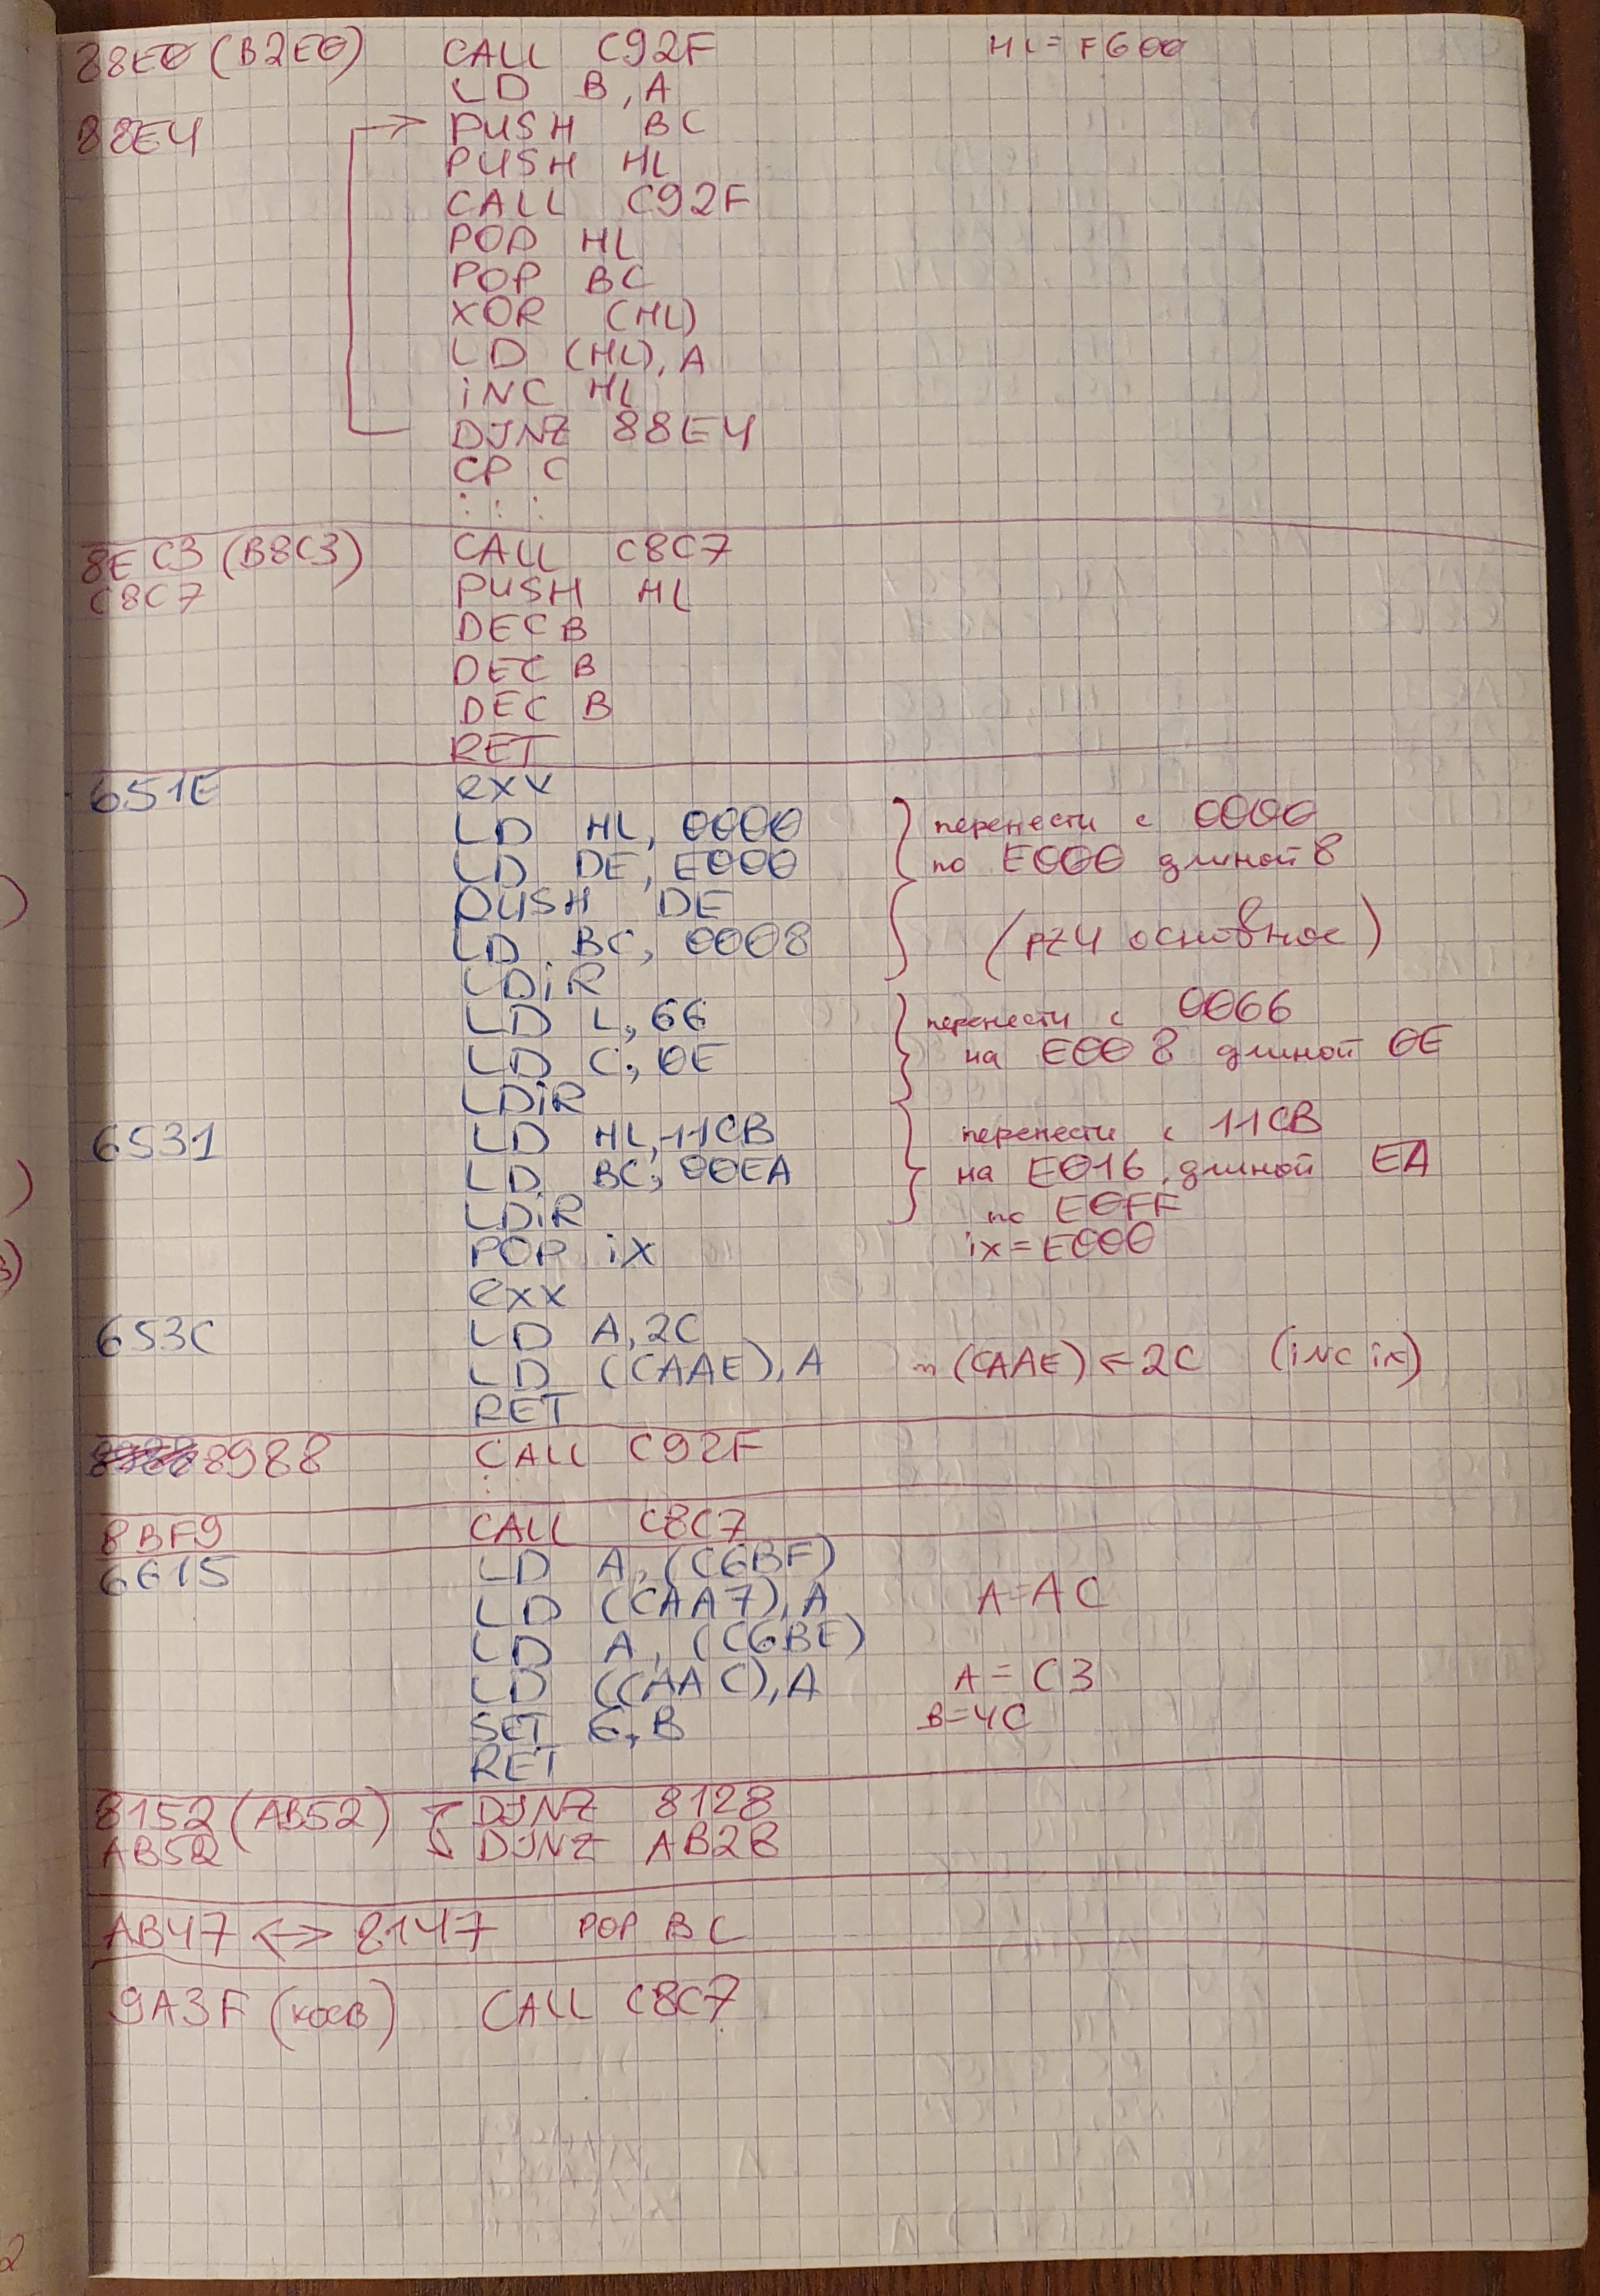 88E0 (B2E0) CALL C92F HL=F600
LD B, A
88E4 PUSH BC
PUSH HL
CALL C92F
POP HL
POP BC
XOR (HL)
LD (HL), A
iNC HL
DJNZ 88E4
CP C
: : :
8EC3 (B8C3) CALL C8C7
C8C7 PUSH HL
DEC B
DEC B
DEC B
RET
651E exx
LD HL, 0000 } перенести с 0000
LD DE, E000 по E000 длиной 8
PUSH DE
LD BC, 0008 (ПЗУ основное)
LDiR
LD L, 66 } перенести с 0066
LD C, 0E на E008 длиной 0E
LDiR
6531 LD HL, 11CB } перенести с 11CB
LD BC, 00EA на E016, длиной EA
LDiR по E0FF
POP iX ix=E000
exx
653C LD A, 2C
LD (CAAE), A (CAAE) ← 2C (iNC ix)
RET
8988 CALL C92F
:
8BF9 CALL C8C7
6615 LD A, (C6BF)
LD (CAA7), A A=AC
LD A, (C6BE)
LD (CAAC), A A=C3
SET 6, B B=4C
RET
8152 (AB52) DJNZ 8128
AB52 DJNZ AB28
AB47 <-> 8147 POP BC
9A3F (косв) CALL C8C7